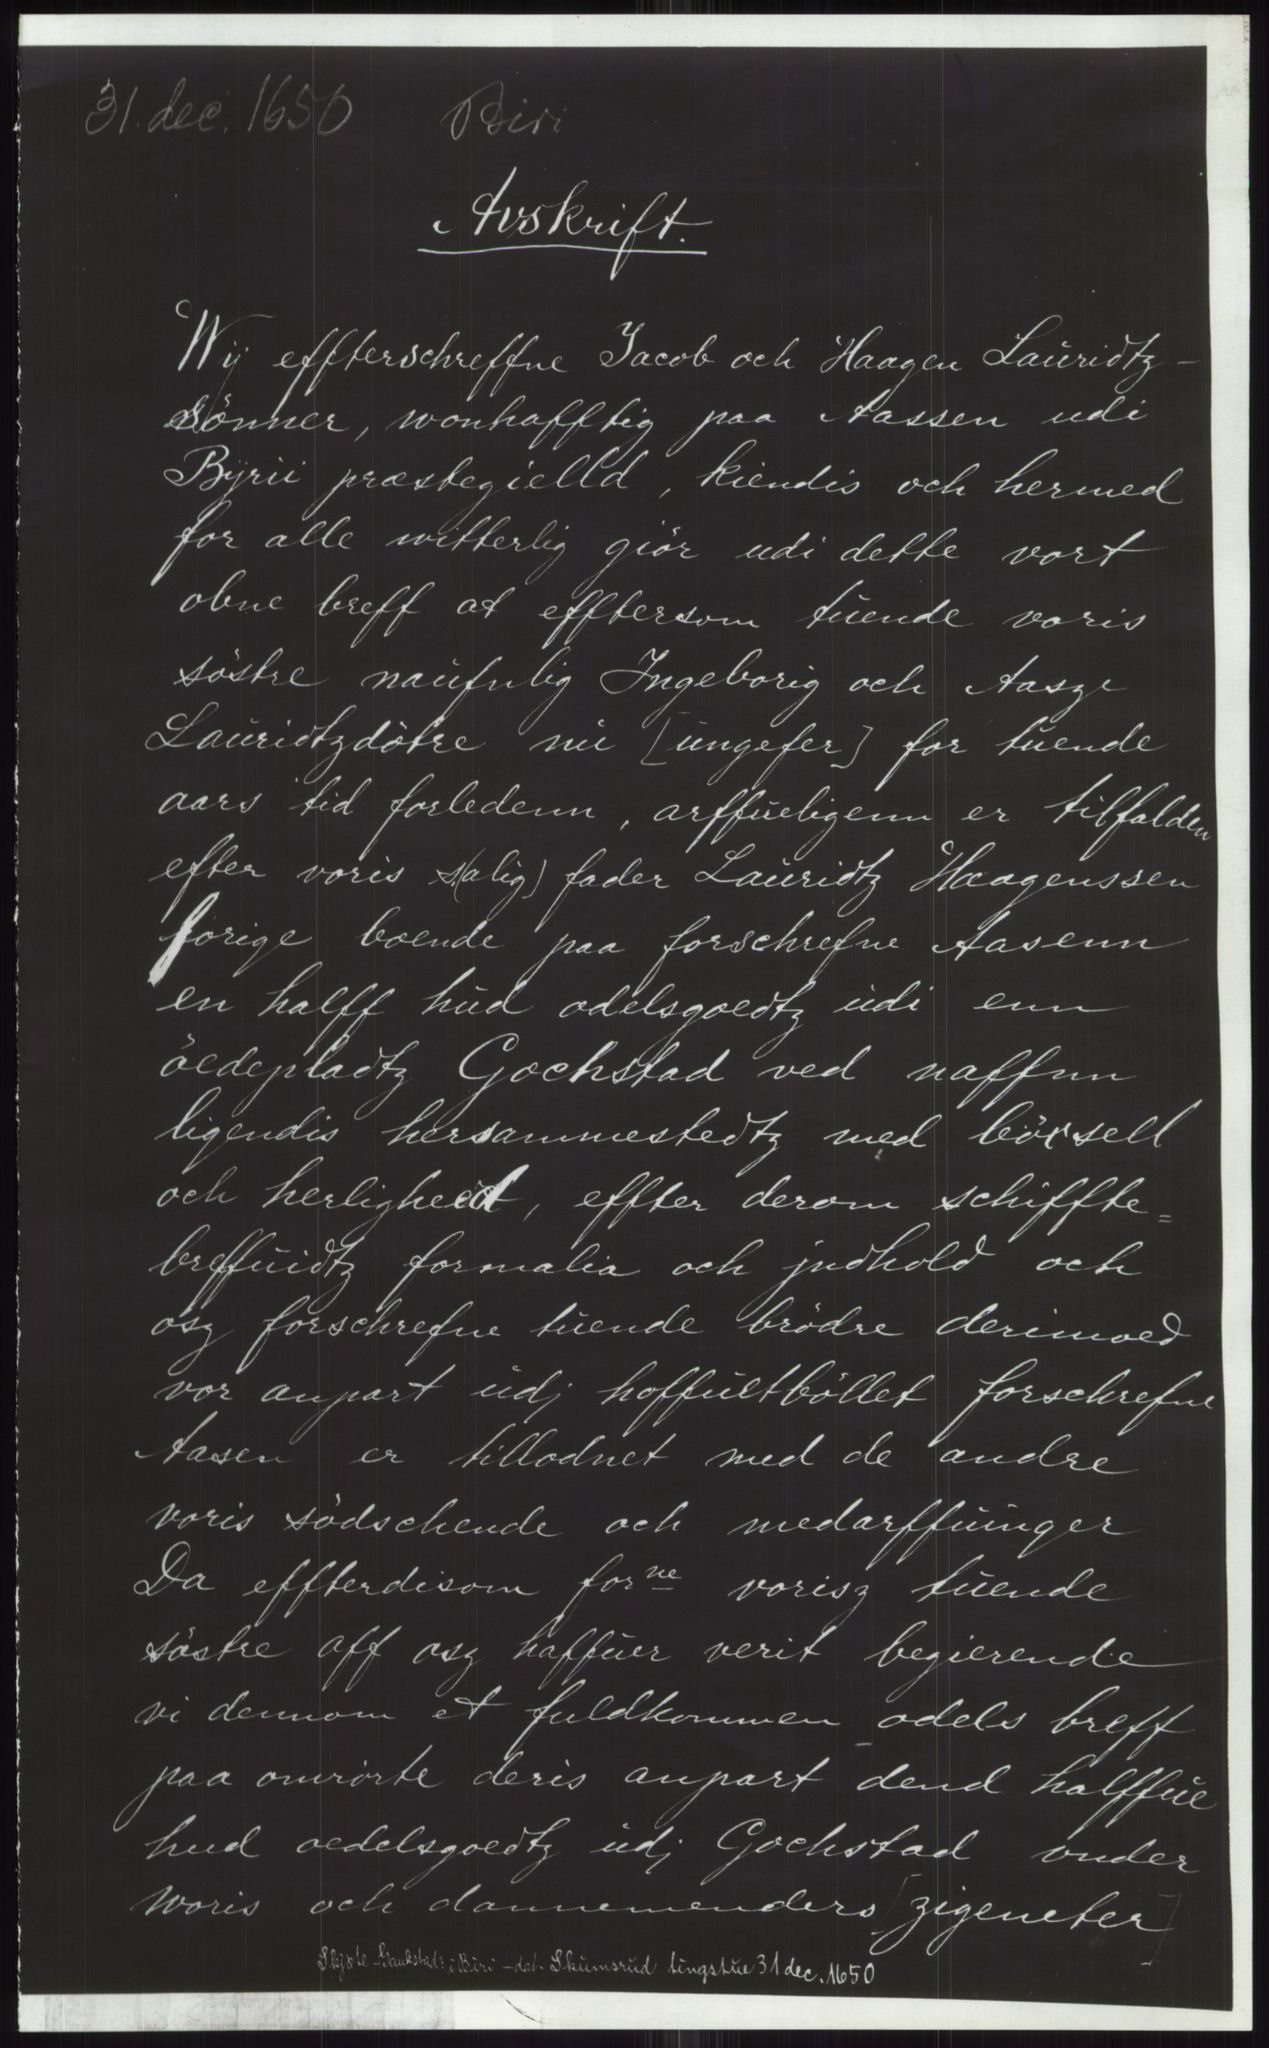 31. dec. 1650 Biri
Avskrift.
Wij effterschreffne Jacob och Haagen Lauridtz-
sönner, wonhafftig paa Aassen udi
Bÿrii præstegielld, kiendis och hermed
for alle witterlig giör udi dette vort
obne breff at efftersom tuende voris
söstre naufnlig Ingeborig och Aasze
Lauridtzdötre nu [ungefer] for tuende
aars tid forledenn, arffueligenn er tilfalden
efter voris s(alig) fader Lauridtz Haagenssen
forige boende paa forschrefne Aasenn
en halff hud odelsgoedtz udi enn
öedepladtz Gochstad ved naffnn
ligendis hersammestedtz med böxsell
och herligheid, effter derom schiffte=
breffuidtz formalia och jndhold och
osz forschrefne tuende brödre derimoed
vor anpart udj hoffuitböllet forschrefne
Aasen er tillodnet med de andre
voris södschende och medarffuinger
Da effterdisom forne vorisz tuende
söstre aff osz haffuer verit begierende
vi dennom et fuldkommen odels breff
paa omrörte deris anpart dend halffue
hud oedelsgoedtz udj Gochstad vnder
woris och dannemenders [zigneter]
Skjøte - Gaukstad i Biri - dat. Skumsrud tingstue 31 dec. 1650